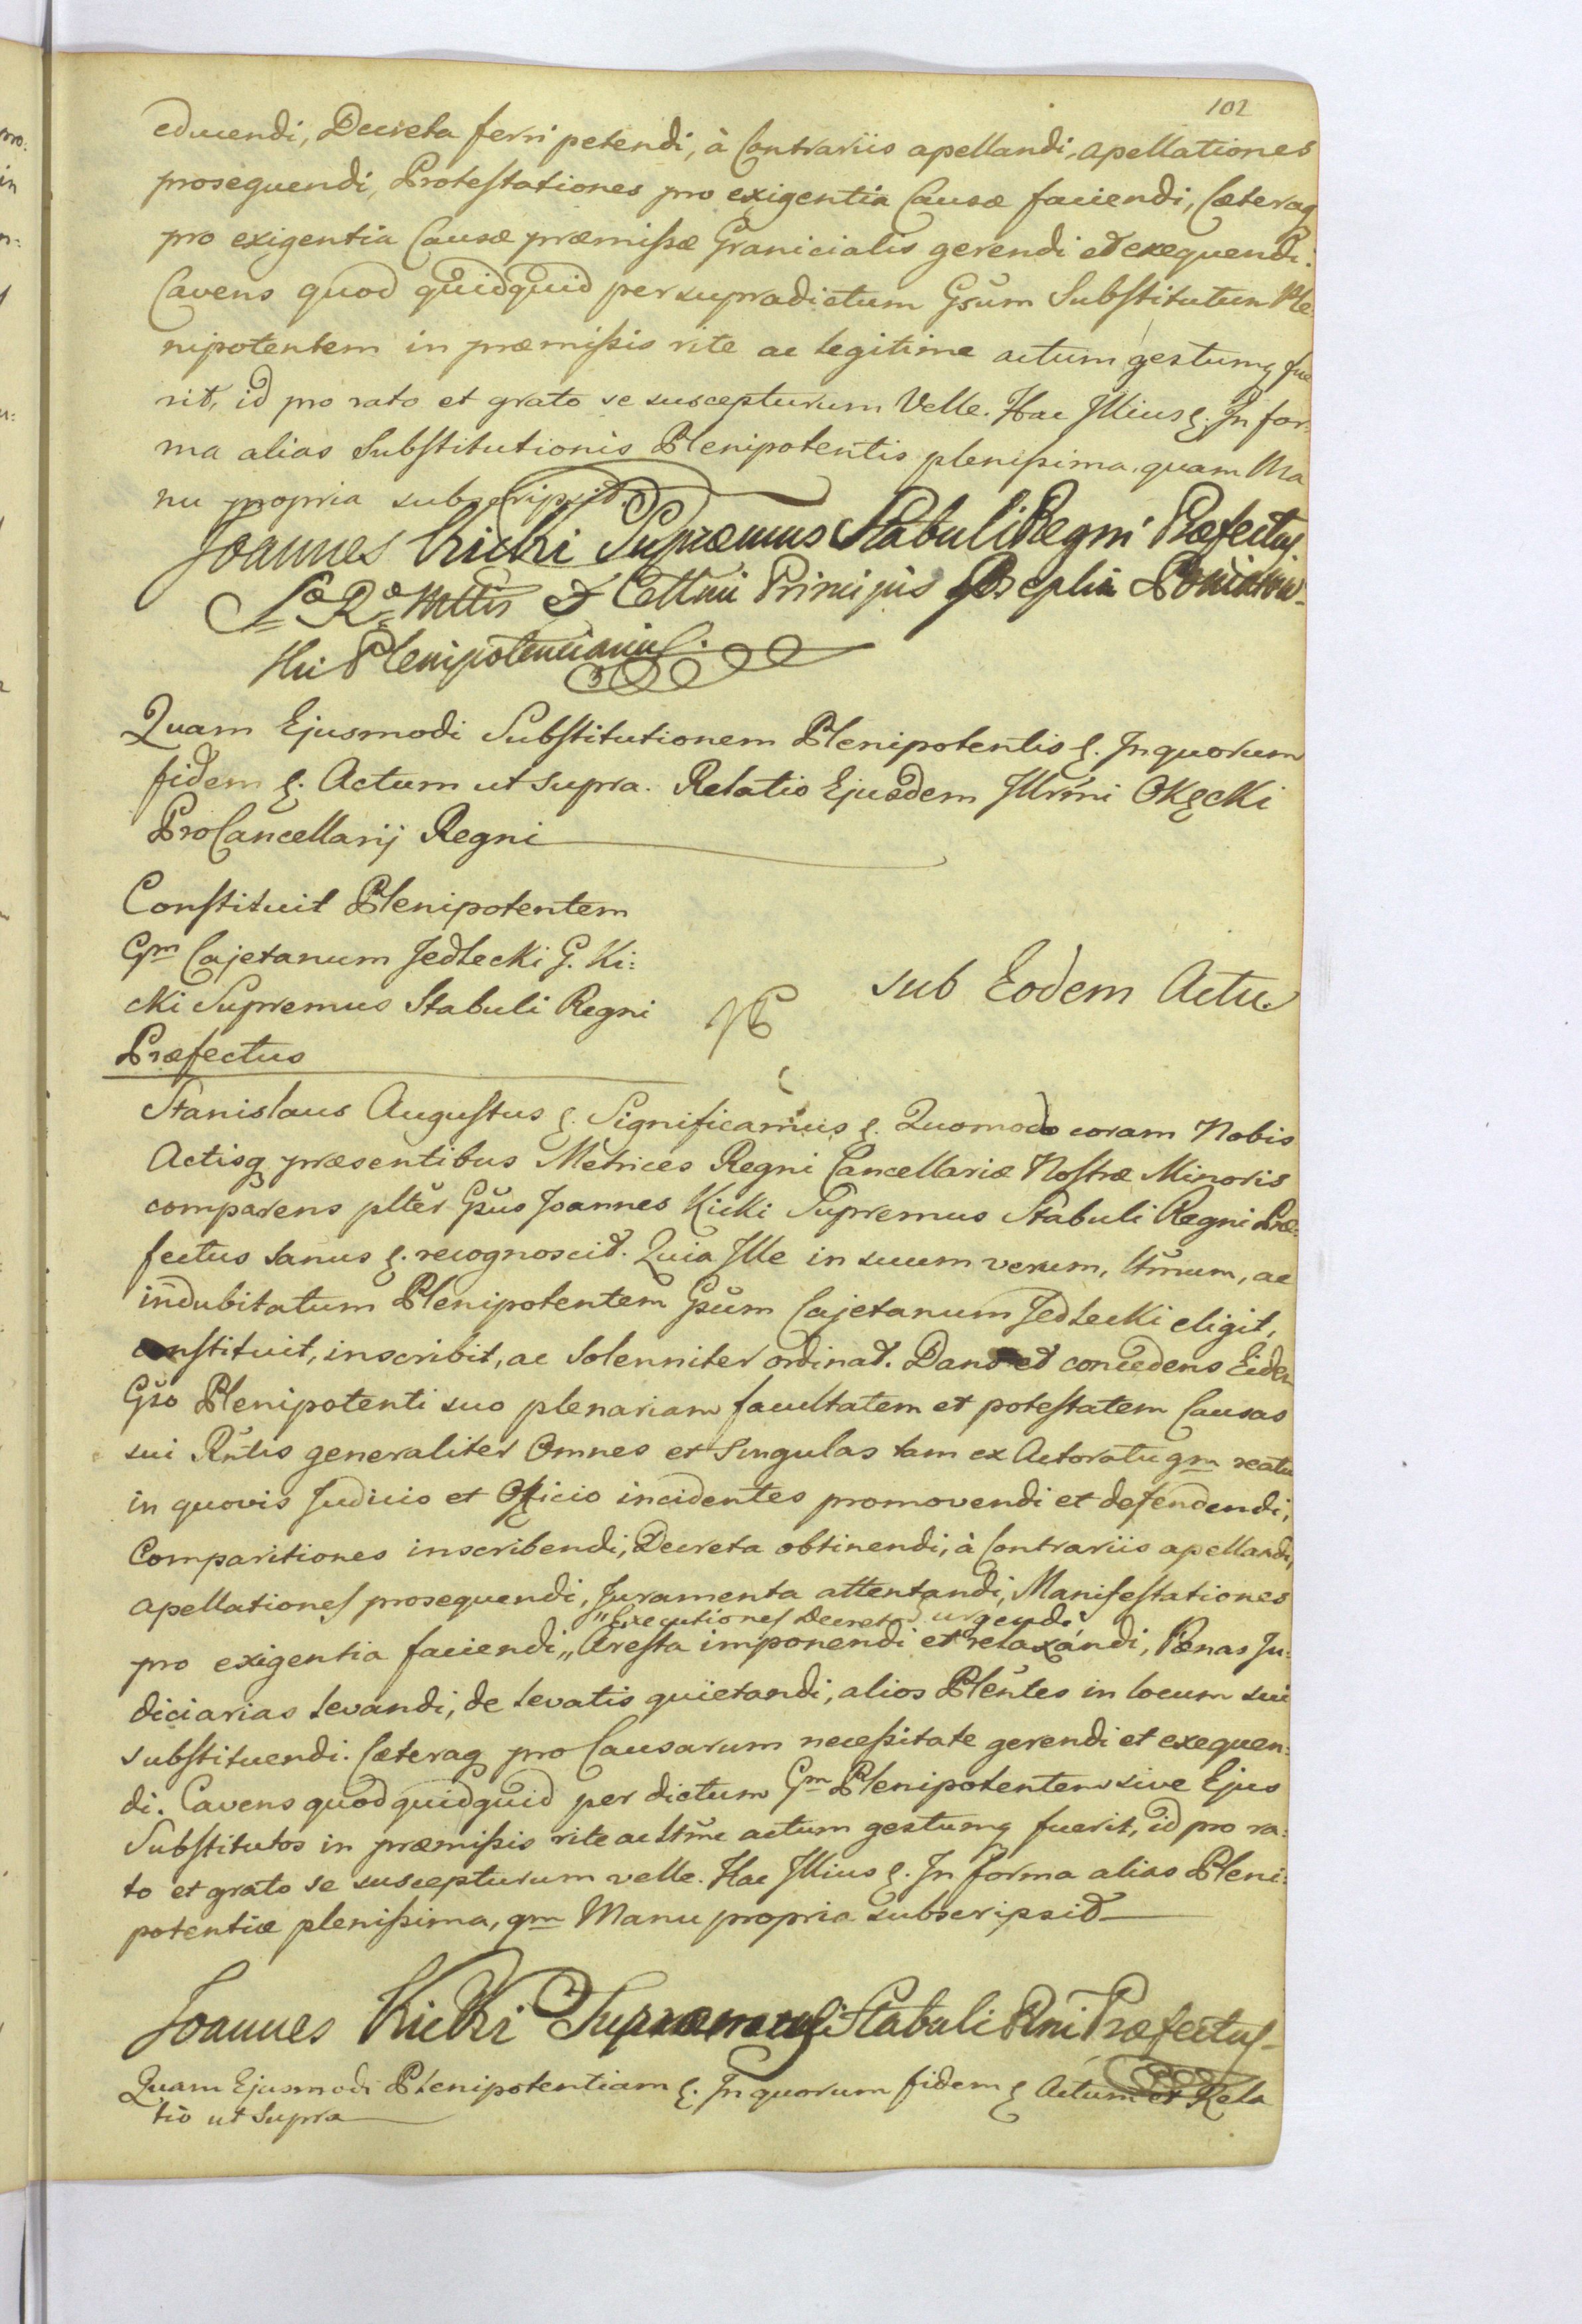 102
educendi, Decreta ferri petendi, à Contrariis apellandi, apellationes
prosequendi, Protestationes pro exigentia Causæ faciendi, Cæteraq
pro exigentia Causæ præmissæ Granicialis gerendi et exequendi.
Cavens quod quidquid per supradictum Gsum Substitutum Ple
nipotentem in præmissis rite ac legitime actum gestumq fue
rit, id pro rato et grato se suscepturum Velle. Hac Illius ę. In for:
ma alias Substitutionis Plenipotentis plenissima, quam Ma
nu propria subscripsit.
Joannes Kicki Supræmus Stabuli Regni Præfectus.
S R Mttis et Celtmi Principis Josephi Poniatow-
ski Plenipotenciarius.
Quam Ejusmodi Substitutionem Plenipotentis ę. In quorum
fidem ę. Actum ut supra. Relatio Ejusdem Illrmi Okęcki
ProCancellarij Regni
Constituit Plenipotentem
Gm Cajetanum Jedlecki G. Ki:
cki Supremus Stabuli Regni
Præfectus
sub Eodem Actu.
Stanislaus Augustus ę. Significamus ę. Quomodo coram Nobis
Actisq præsentibus Metrices Regni Cancellariæ Nostræ Minoris
comparens plter Gsus Joannes Kicki Supremus Stabuli Regni Præ:
fectus sanus ę. recognoscit. Quia Ille in suum verum, ltmum, ac
indubitatum Plenipotentem Gsum Cajetanum Jedlecki eligit,
constituit, inscribit, ac Solenniter ordinat. Dans et concedens Eidem
Gso Plenipotenti suo plenariam facultatem et potestatem Causas
sui Rntis generaliter Omnes et Singulas tam ex Actoratu qm reatu
in quovis Judicio et Officio incidentes promovendi et defendendi,
Comparitiones inscribendi, Decreta obtinendi, à Contrariis apellandi,
apellationes prosequendi, Juramenta attentandi, Manifestationes
"Executiones Decretor urgendi
pro exigentia faciendi,, Aresta imponendi et relaxandi, Pænas Ju:
diciarias levandi, de levatis quietandi, alios Plentes in locum sui
substituendi. Cæteraq pro Causarum necessitate gerendi et exequen:
di. Cavens quod quidquid per dictum Gm Plenipotentem sive Ejus
Substitutos in præmissis rite ac ltme actum gestumq fuerit, id pro ra:
to et grato se suscepturum velle. Hac Illius ę. In forma alias Pleni:
potentiæ plenissima, qm Manu propria subscripsit
Joannes Kicki Stabuli Rni Præfectus
Quam Ejusmodi Plenipotentiam ę. In quorum fidem ę Actum et Rela
tio ut Supra